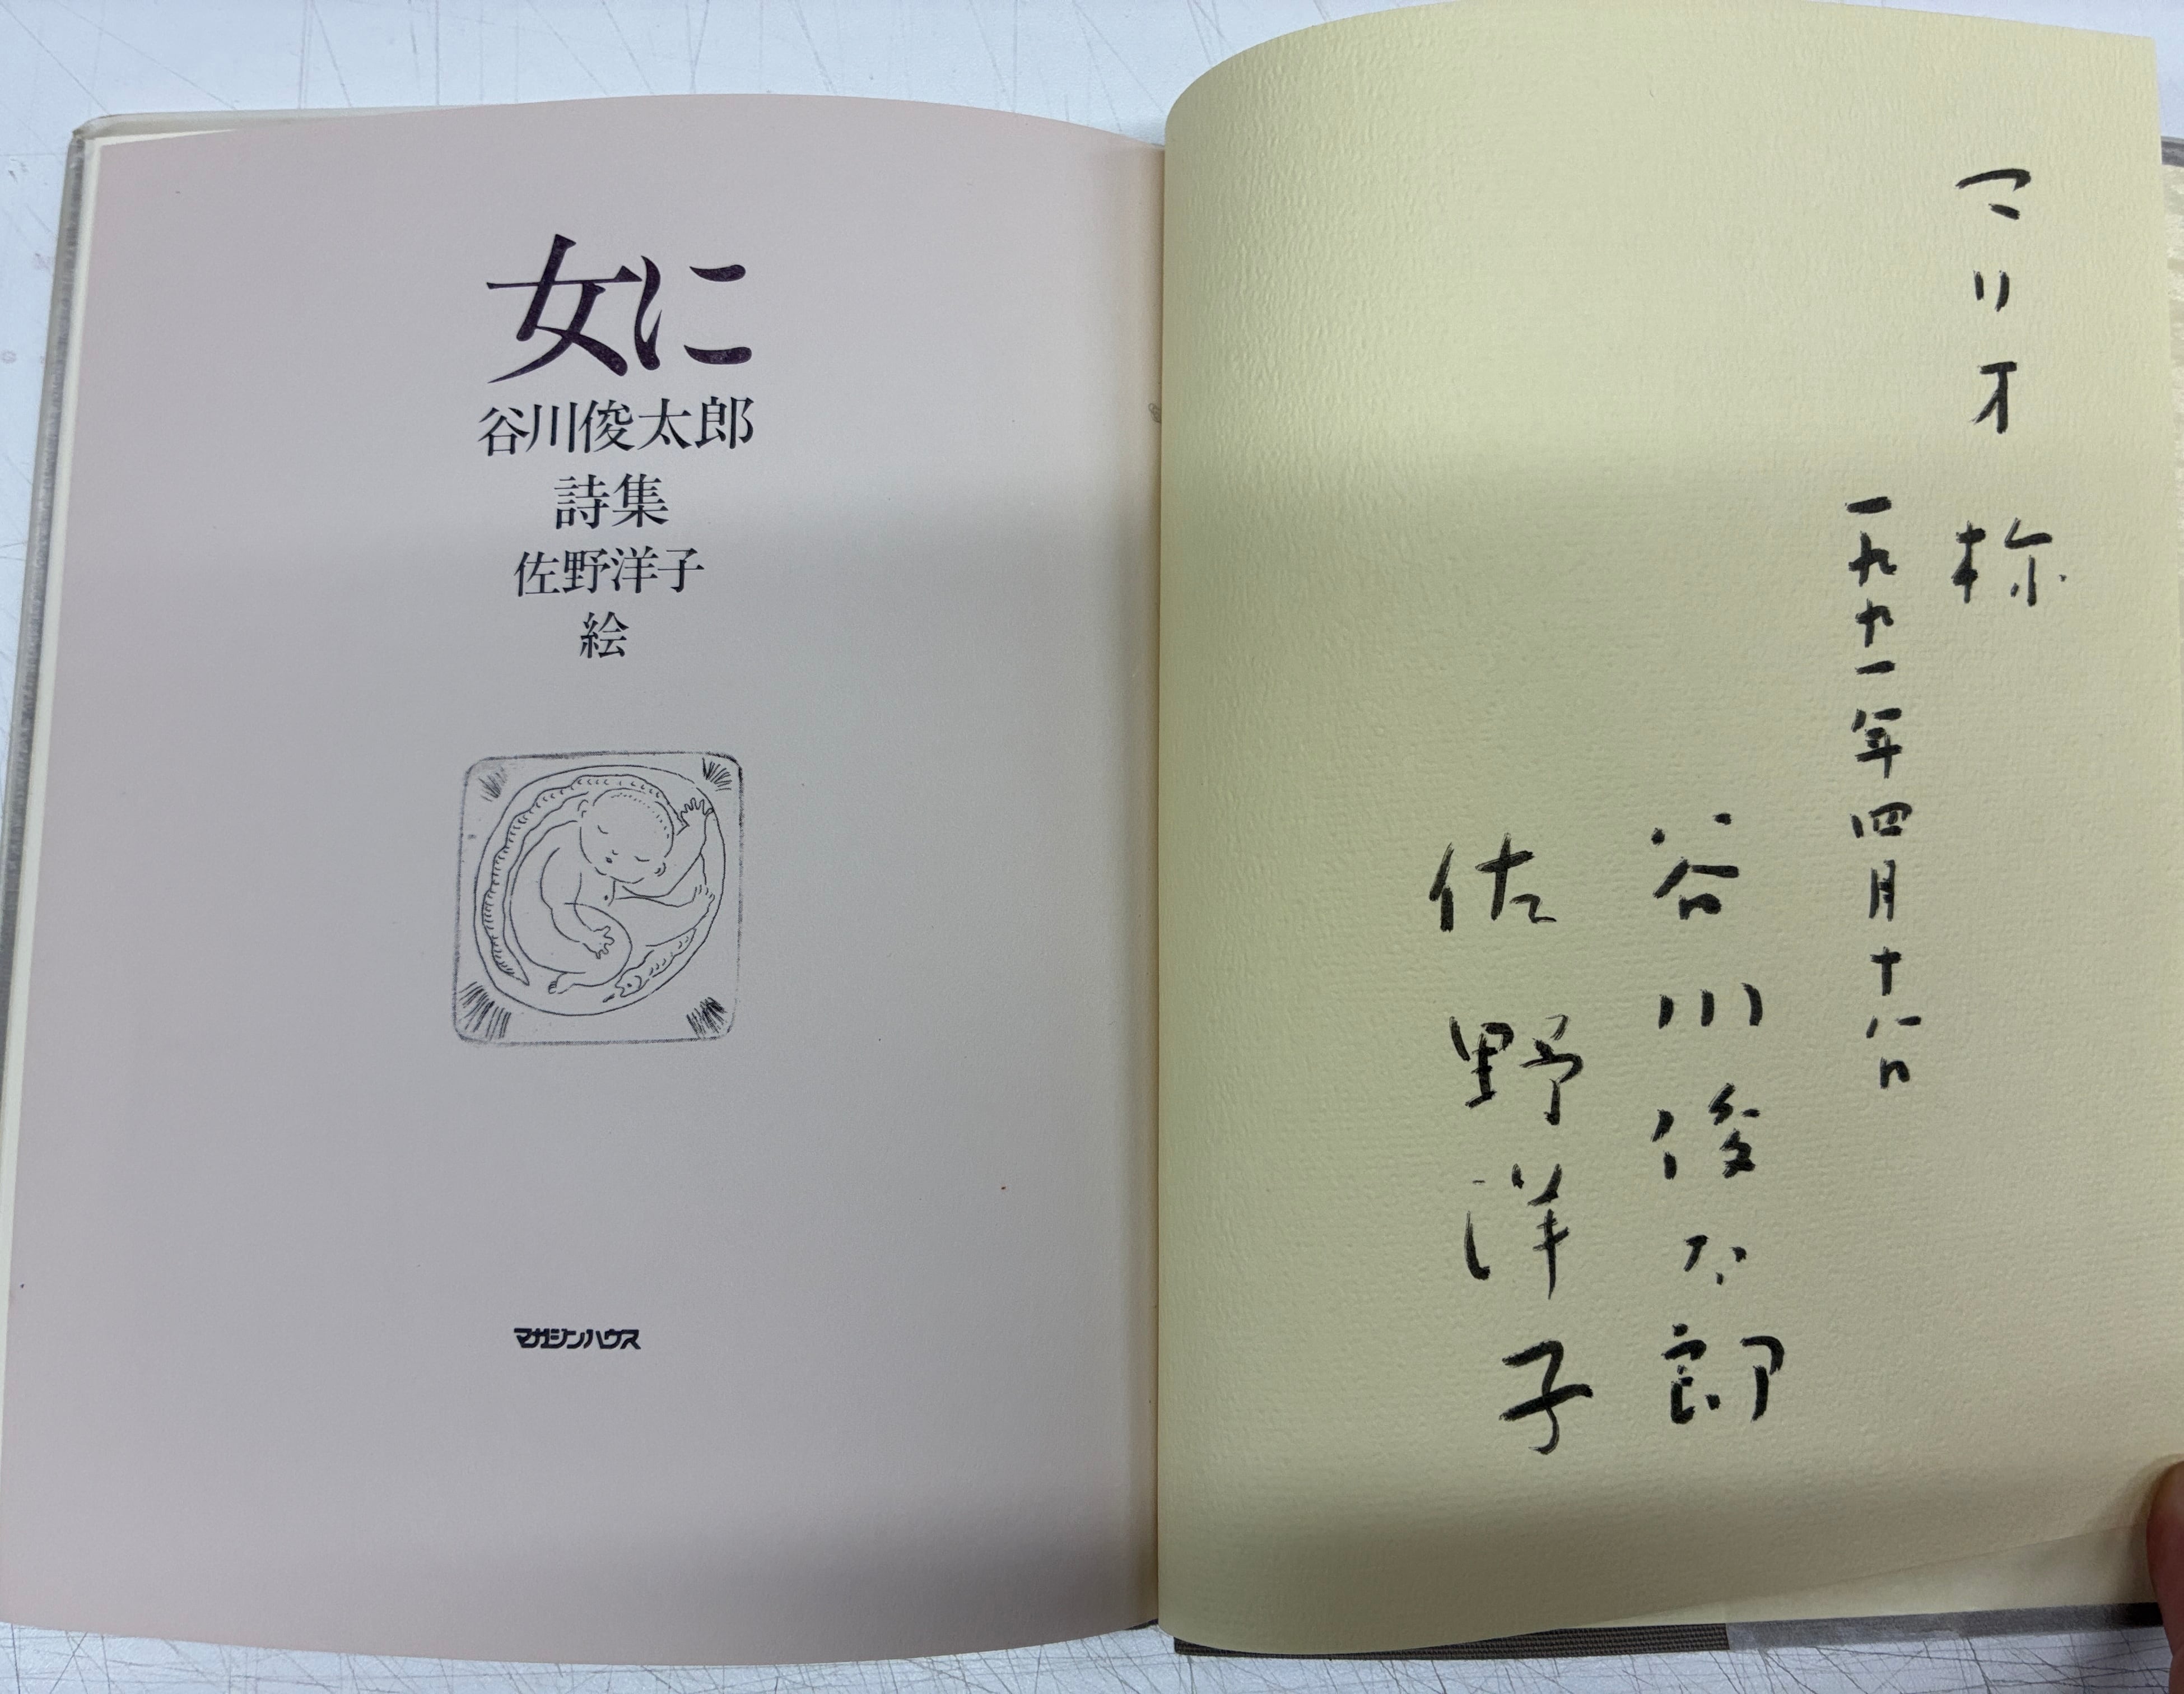 女に
谷川俊太郎
詩集
佐野洋子
絵
マガジンハウス
マリオ様
一九九一年四月十八日
谷川俊太郎
佐野洋子